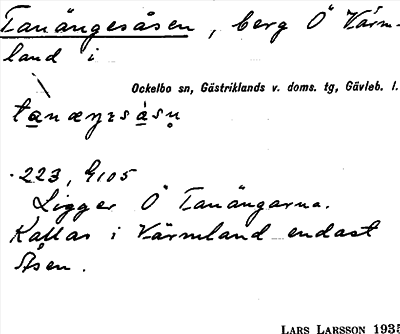 Tanängesåsen, berg Ö Värm-
land i
Ockelbo sn, Gästriklands v. doms. tg, Gävleb. l.
223, G105
Ligger Ö Tanängarna.
Kallas i Värmland endast
Åsen.
LARS LARSSON 1935